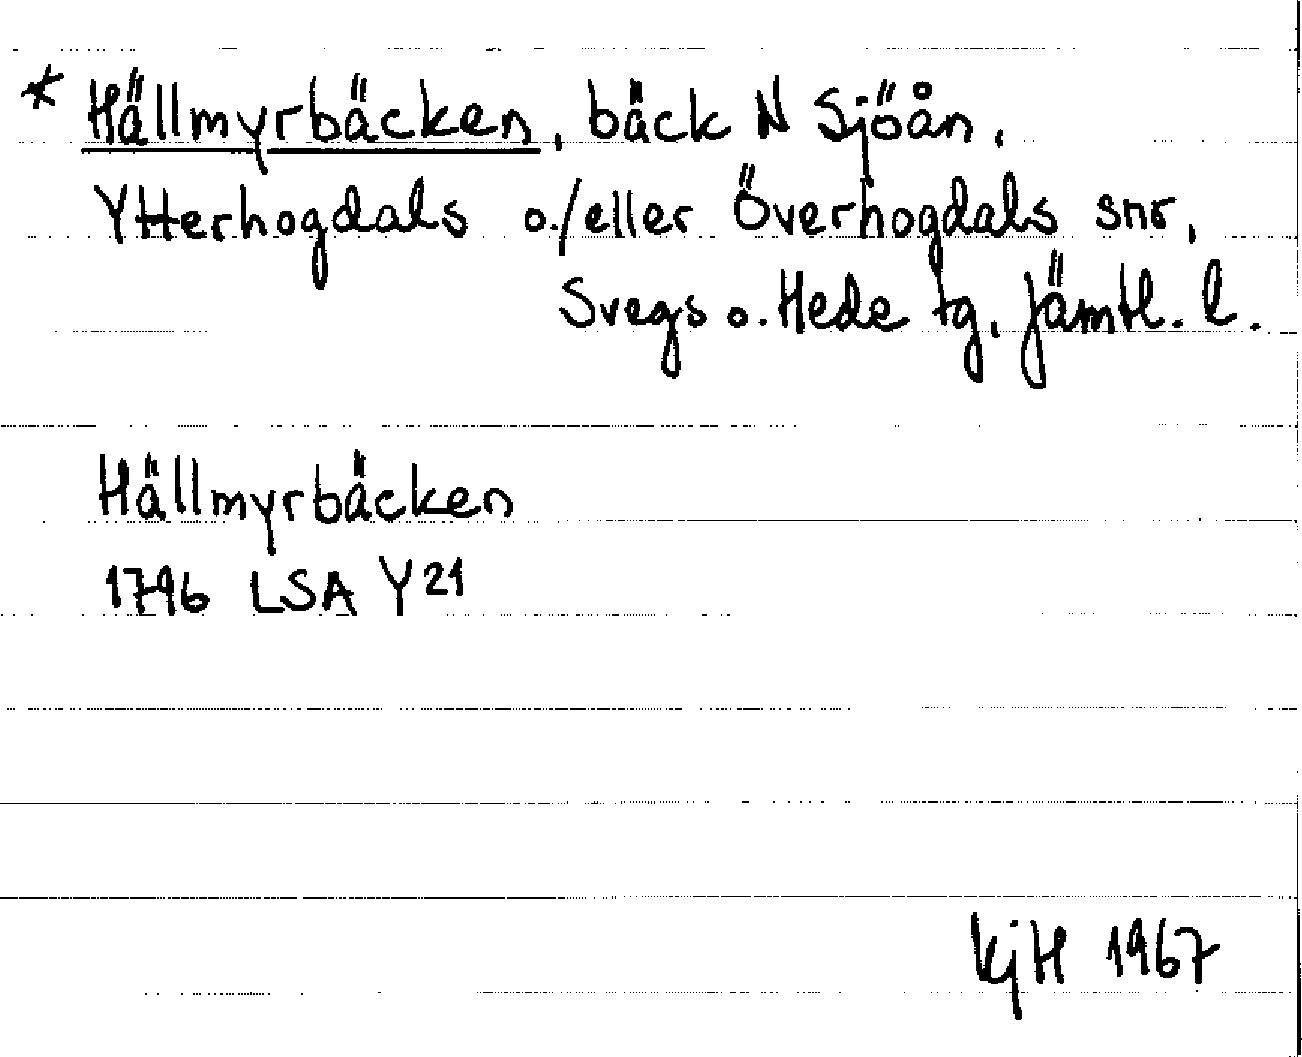 * Hällmyrbäcken, bäck N Sjöån,
Ytterhogdals o./eller Överhogdals snr,
Svegs o. Hede tg, Jämtl. l.
Hällmyrbäcken
1796 LSA Y21
KjH 1967